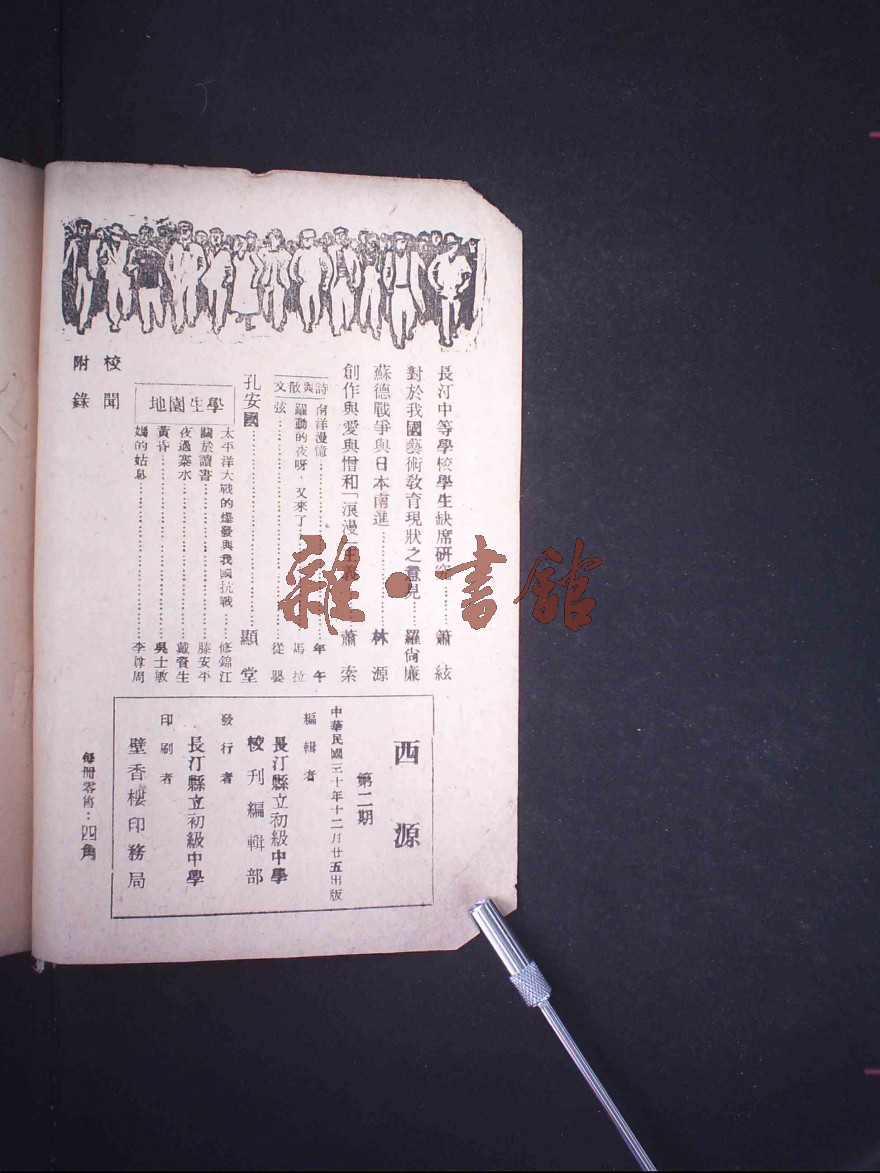 長汀中等學校學生缺席研究……簫絃
對於我國藝術敎育現狀之意見……羅尙廉
蘇德戰爭與日本南進……林源
創作與愛與憎和「浪漫」主義……蕭索
詩與散文
南洋漫憶……年午
躍動的夜呀，又來了……馬拉
弦……從嬰
孔安國……顯堂
學生園地
太平洋大戰的爆發與我國抗戰……修錦江
關於讀書……滕安平
夜過寨水……戴賚生
黃昏……吳士敏
媽的姑息……李尊周
校聞
附錄
西源
第二期
中華民國三十年十二月廿五出版
編輯者
長汀縣立初級中學
校刊編輯部
發行者
長汀縣立初級中學
印刷者
壁香樓印務局
每冊零售：四角
雜·書館